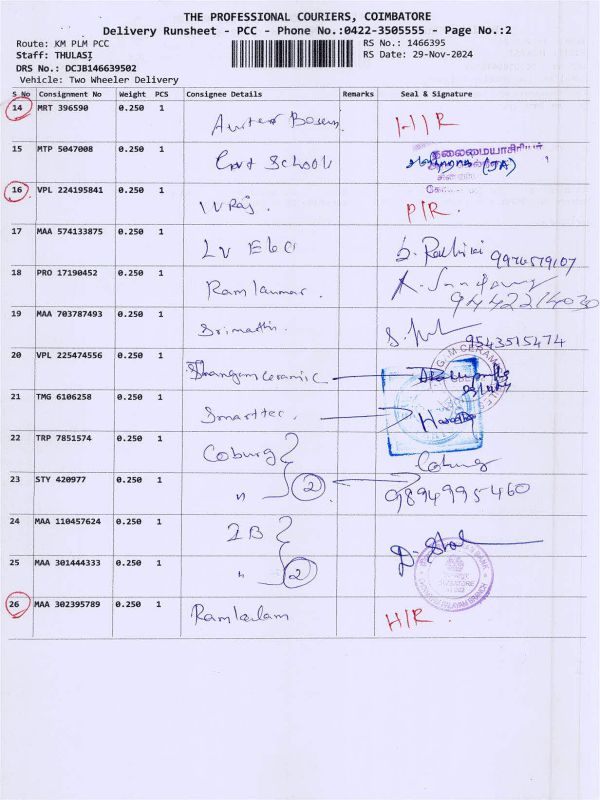 THE PROFESSIONAL COURIERS, COIMBATORE
Delivery Runsheet - PCC - Phone No.:0422-3505555 - Page No.:2
Route: KM PLM PCC RS No.: 1466395
Staff: THULASI RS Date: 29-Nov-2024
DRS No.: DCJB146639502
Vehicle: Two Wheeler Delivery
S No Consignment No Weight PCS Consignee Details Remarks Seal & Signature
14 MRT 396590 0.250 1 H/R
15 MTP 5047008 0.250 1 Govt School தலைமையாசிரியர்
16 VPL 224195841 0.250 1 P/R.
17 MAA 574133875 0.250 1 LV Elec
18 PRO 17190452 0.250 1 Ramkumar. 9442214030
19 MAA 703787493 0.250 1 Srimathi. 9543515474
20 VPL 225474556 0.250 1 Ceramic
21 TMG 6106258 0.250 1 Smarttec.
22 TRP 7851574 0.250 1 Coburg Coburg
23 STY 420977 0.250 1 " 2 9894995460
24 MAA 110457624 0.250 1 IB
25 MAA 301444333 0.250 1 " 2
26 MAA 302395789 0.250 1 Ramkailam H/R.